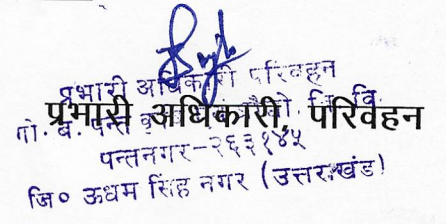 प्रभारी अधिकारी परिवहन
प्रभारी अधिकारी, परिवहन
गो. ब. पन्त कृ
पन्तनगर-२६३१४५
जि० ऊधम सिंह नगर (उत्तराखंड)